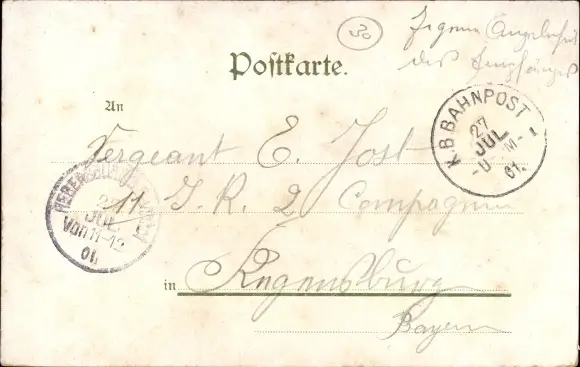 30
Eigene Angelegenheit
des Empfängers
Postkarte.
K.B.BAHNPOST
27
JUL
01.
An
Sergeant E. Jost
11 J. R. 2 Compagnie
REGENSBURG
JUL.
Von 11-12
01
in Regensburg
Bayern